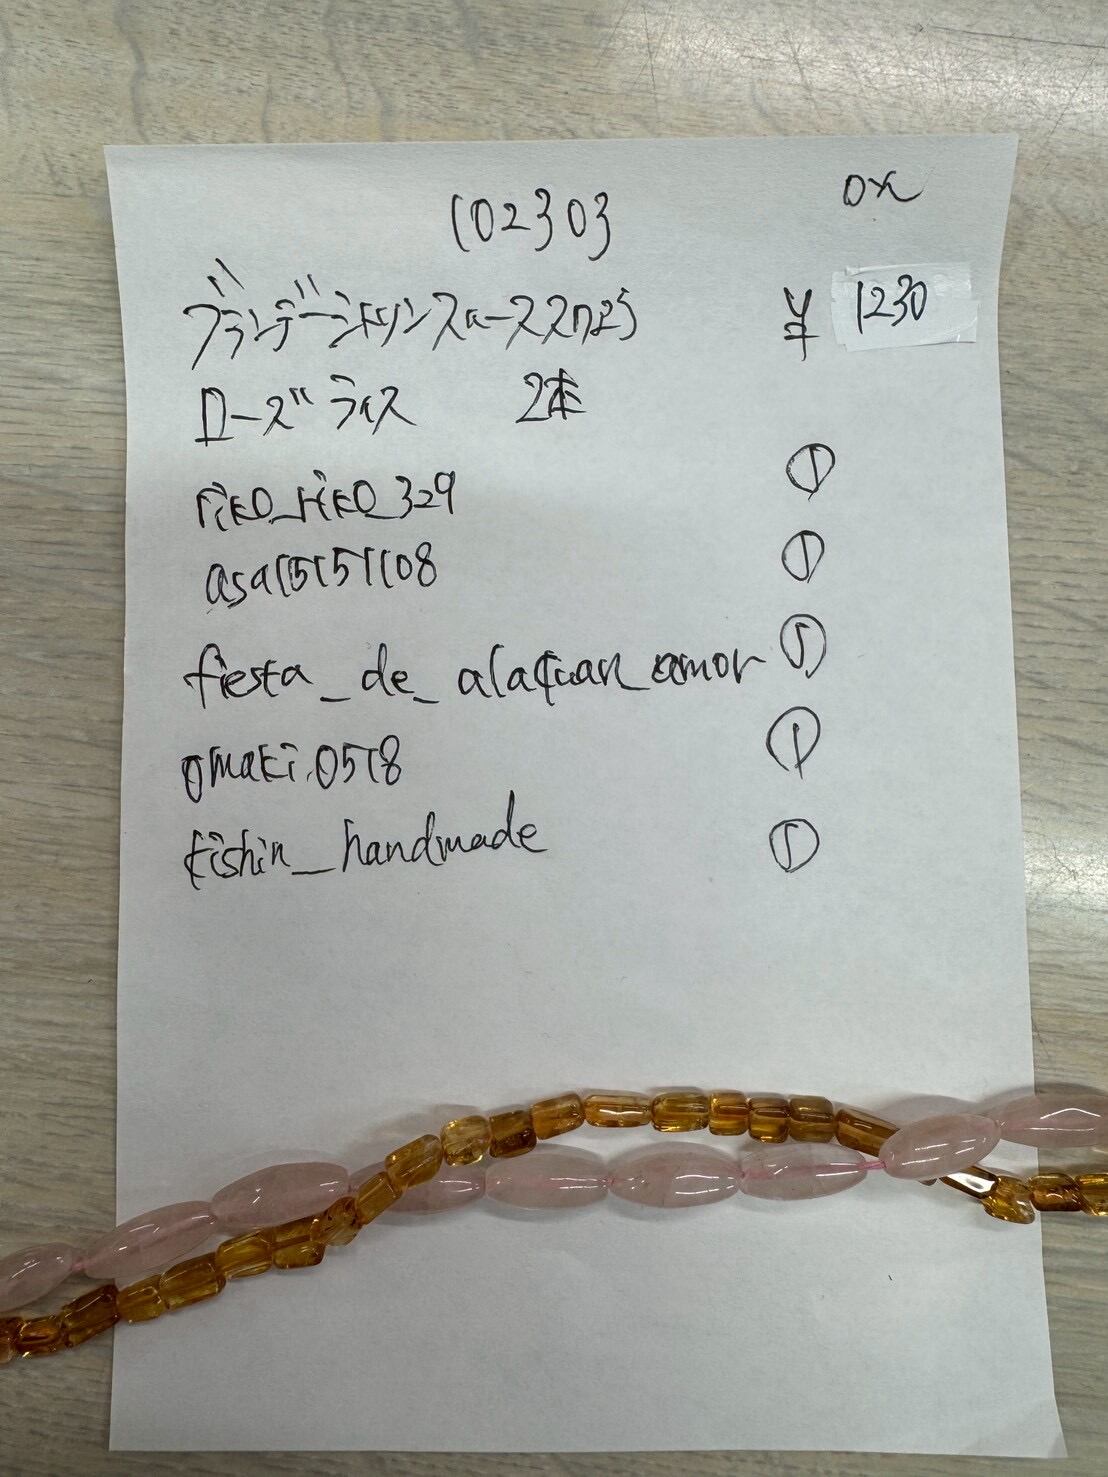 102303 0x
ブランデーシトリンスムーススクエア ¥ 1230
ローズライス 2本
riko_riko_329 ①
asa15151108 ①
fiesta_de_alacran_amor ①
omaki.0518 ①
kishin_handmade ①